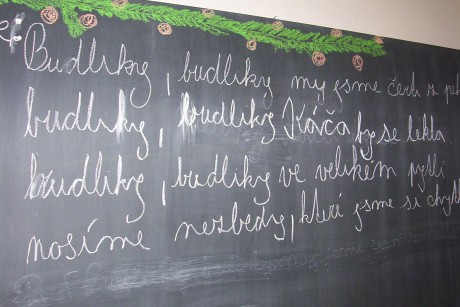 Budliky, budliky my jsme čerti z pek
budliky, budliky Káča by se lekla.
budliky, budliky ve velikém pytli
nosíme nezbedy, které jsme si chytli